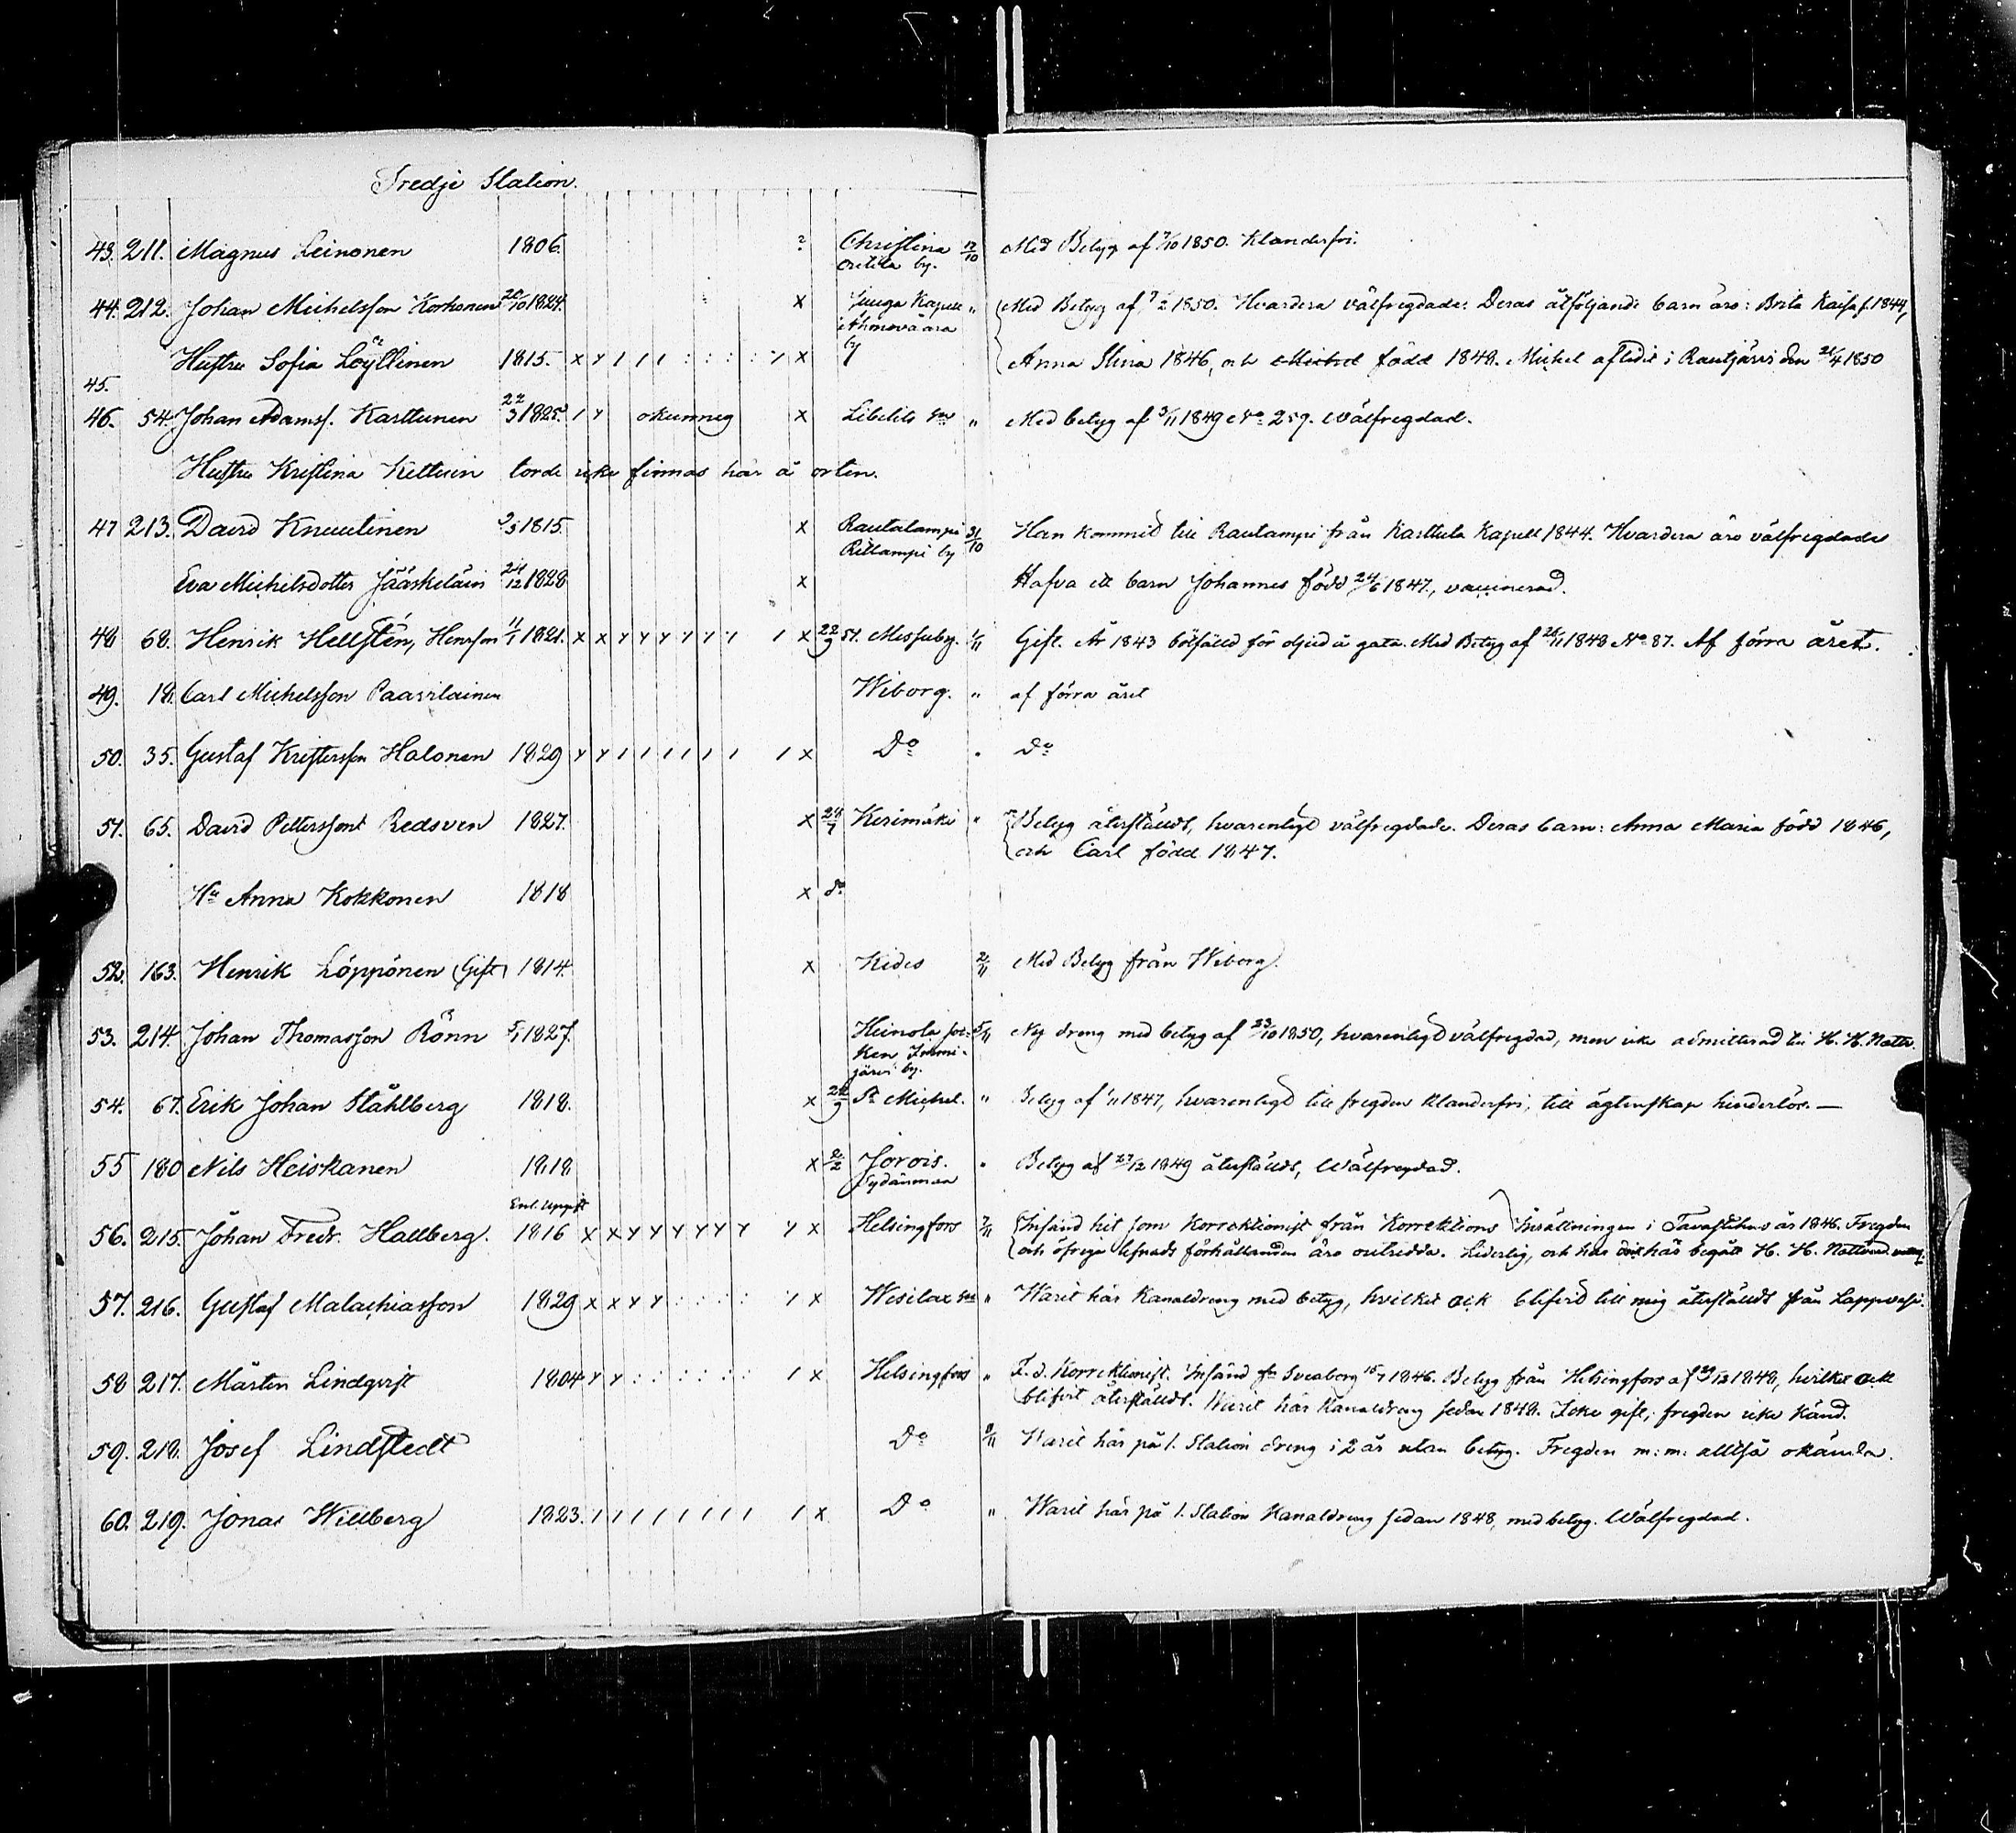 Tredje Station.
43. 211. Magnus Leinonen 1806. ? Christina 17/10 Med Betyg af 7/10 1850. Klanderfri.
by.
44. 212. Johan Michelsson Korhonen 20/10 1824. x Juuga Kapell " Med Betyg af 1850. Hvardera välfregdade. Deras åtföljande barn äro: Brita Kaisa f. 1844,
Ahmovaara
Hustru Sofia Löyttinen 1815. x by Anna Stina 1846, och Michel född 1848. Michel aflidit i Rautjärvi den 21/4 1850
45.
46. 54. Johan Adamss. Karttunen 22/3 1825. okunnig x Libelits sn " Med betyg af 3/11 1849 No 259. Wälfregdad.
Hustru Kristina Kettuin torde icke finnas här å orten.
47 213. David Knuutinen 2/5 1815. x Rautalampi 31/10 Han kommit till Rautampi från Karttula Kapell 1844. Hvardera äro välfregdade
by
Eva Michelsdotter Jääskeläin 24/12 1828 x Hafva ett barn Johannes född 24/6 1847, vaccinerad.
48 68. Henrik Hellstén, Henrsson 11/1 1821. x x 22/9 St. Messuby. 1/11 Gift. År 1843 bötfälld för oljud å gata. Med Betyg af 28/11 1848 No 87. Af förra året.
49. 18. Carl Michelsson Paavilainen Wiborg. " af förra året
50. 35. Gustaf Kristersson Halonen 1829 x Do " Do
51. 65. David Petterssont Redsven 1827. x 24/7 Kerimäki " Betyg återstäldt, hvarenligt välfregdade. Deras barn: Anna Maria född 1846,
och Carl född 1847.
Hu Anna Kokkonen 1818 x do
52. 163. Henrik Löppönen (Gift) 1814. x Kides 2/11 Med Betyg från Wiborg.
53. 214. Johan Thomasson Rönn 5/1 1827. Heinola soc- 5/11 Ny dreng med betyg af 23/10 1850, hvarenligt välfregdad, men icke admitterad till H. H. Nattv.
ken Immi-
järvi by.
54. 67. Erik Johan Ståhlberg 1818. x 24/9 St Michel. " Betyg af 1/11 1847, hvarenligt till fregden klanderfri, till ägtenskap hinderlös. —
55 180 Nils Heiskanen 1818 x 2/2 Jorois. " Betyg af 27/12 1849 återstäldt, Wälfregdad.
Sydänmaa
Enl. uppgift
56. 215. Johan Fredr. Hallberg. 1816 x x x Helsingfors 7/11 Insänd hit som Korrektionist från Korrektions Inrättningen i Tavastehus år 1846. Fregden
och öfriga lefnads förhållanden äro outredda. Liderlig, och har här begått H. H. Nattvard.
57. 216. Gustaf Malachiasson 1829 x x x Wesilax sn " Warit här Kanaldreng med betyg, hvilket ock blifvit till mig återstäldt från Lappvesi.
58 217. Mårten Lindqvist 1804 x Helsingfors " F. d. Korrektionist. Insänd fr Sveaborg 15/7 1846. Betyg från Helsingfors af 1848, hvilket ock
blifvit återstäldt. Warit här Kanaldreng sedan 1848. Icke gift; fregden icke känd.
59. 218. Josef Lindstedt Do 8/11 Warit här på 1. Station dreng i 2 år utan betyg. Fregden m: m: alltså okända.
60. 219. Jonas Willberg 1823. x Do " Warit här på 1. Station Kanaldreng sedan 1848, med betyg. Wälfregdad.